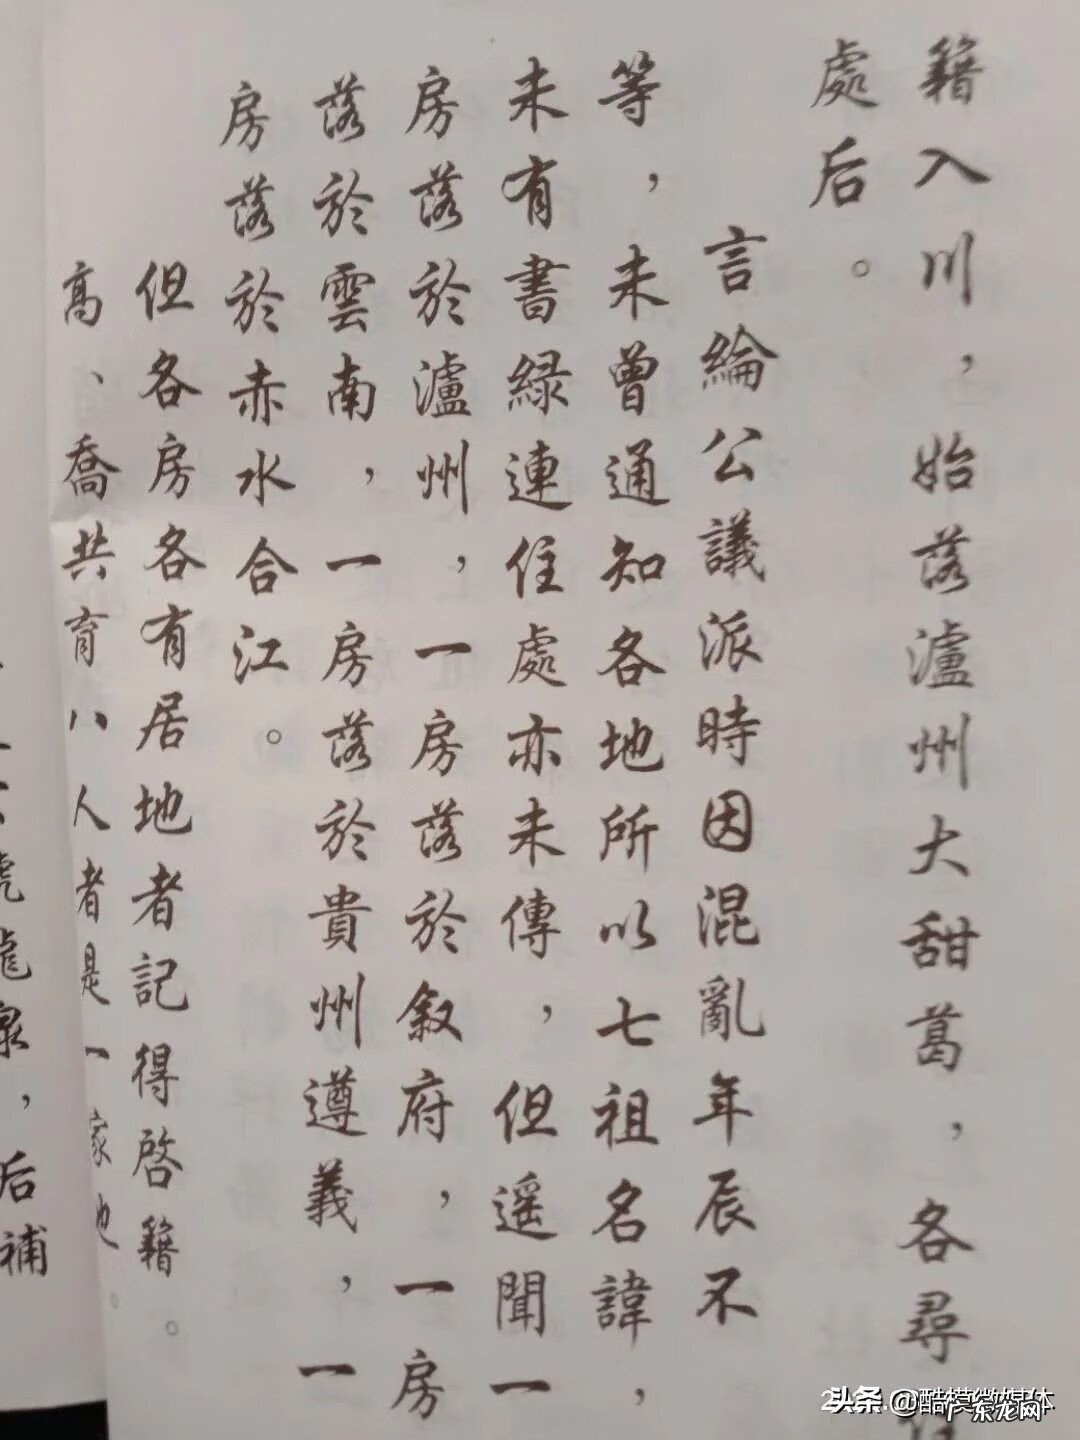 籍入川，始落瀘州大甜葛，各尋住
處后。
言綸公議派時因混亂年辰不
等，未曾通知各地所以七祖名諱，
未有書綠連住處亦未傳，但遥聞一
房落於瀘州，一房落於叙府，一房
落於雲南，一房落於貴州遵義，一
房落於赤水合江。
但各房各有居地者記得啓籍。
高、喬共育八人者是一家也。
龍泉，后補
头条 @酷模微媒体
广东龙网